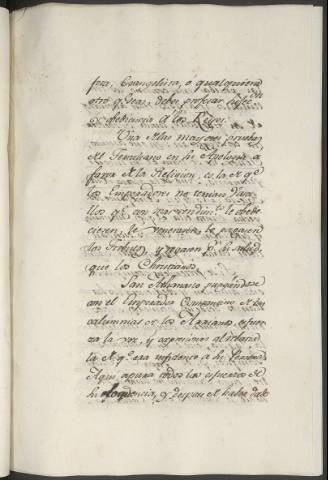 fera, Evangelica, o qualquiera
otro q.e sea, deben profesar
obediencia à los Reyes.
Una de las mayores pruebas
de Tertuliano en su Apologia a
favor de la Religion, es la de q.e
los Emperadores no tenian Vasa-
llos q.e con mas rendim.to le obede-
ciesen, le venerasen, le pagasen
los tributos, y orasen p.r su salud,
que los Christianos.
San Atanasio purgandose
con el Emperador Constancio de las
calumnias de los Arrianos, esfuer-
za la voz, y expresiones
la de q.e era
Aqui apura todos los esfuerzos de
su eloquencia, y despues de haber dado